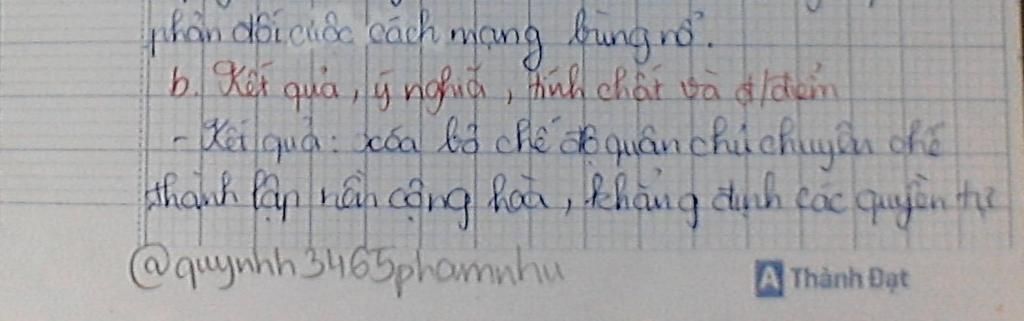 phản đối cuộc cách mạng bùng nổ.
b. Kết quả, ý nghĩa, tính chất và đ/điểm
- Kết quả: xóa bỏ chế độ quân chủ chuyên chế
thành lập nền cộng hoà, khẳng định các quyền tự
@quynhh3465phamnhu
A Thành Đạt